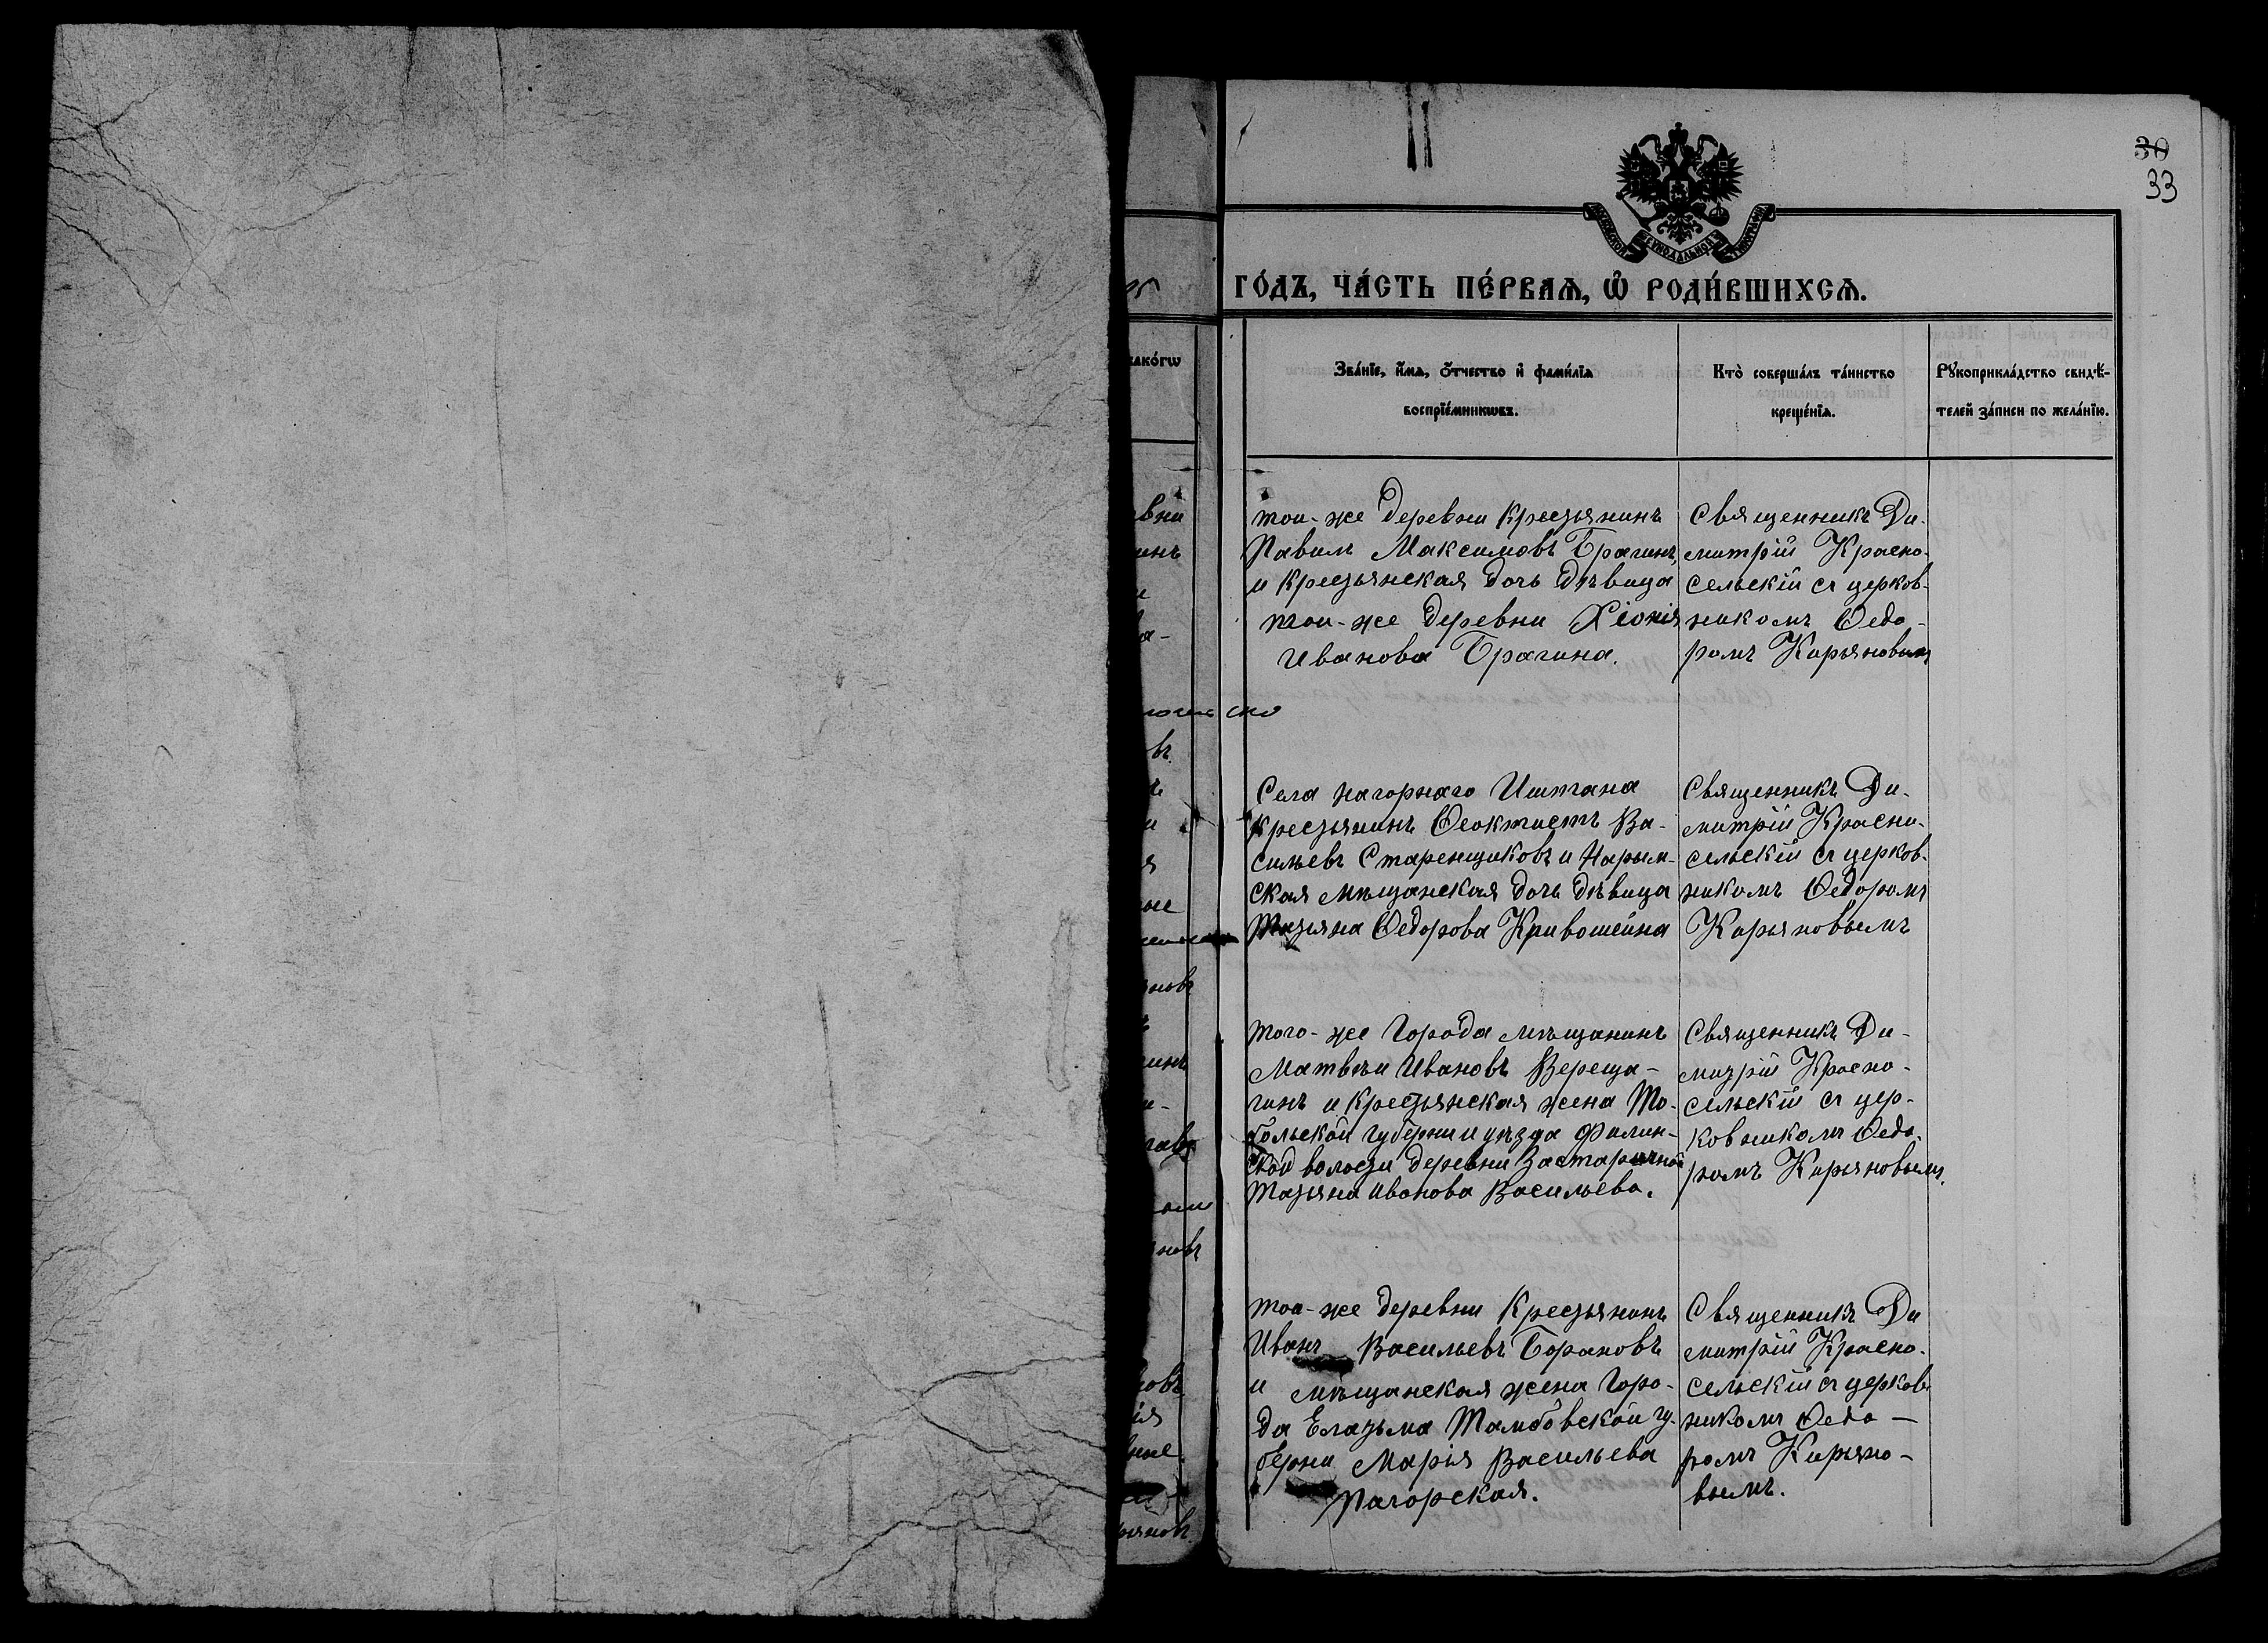 30
33
МОСКОВСКОЙ СѴНОДАЛЬНОЙ ТИПОГРАФІИ
ГО́ДЪ, ЧА́СТЬ ПЕ́РВАѦ, Ѽ РОДИ́ВШИХСѦ.
Зва́нїе, и҆́мѧ, ѻ҆́тчество и҆ фами́лїѧ
воспрїе́мникѡвъ.
Кто̀ соверша́лъ та́инство
креще́нїѧ.
Рꙋкоприкла́дство свидѣ́-
телей за́писи по жела́нїю.
какогѡ
той-же деревни крестьянинъ
Павилъ Максимовъ Брагинъ,
и крестьянская дочь дѣвица
той-же деревни Хіонія
Иванова Брагина.
Священникъ Ди-
митрій Красно-
сельскій съ церков-
никомъ Ѳедо-
ромъ Кирьяновымъ
Села Нагорнаго Иштана
крестьянинъ Ѳеоктистъ Ва-
сильевъ Старенщиковъ и Нарым-
ская мѣщанская дочь дѣвица
Татьяна Ѳедорова Кривошеина
Священникъ Ди-
митрій Красно-
сельскій съ церков-
никомъ Ѳедоромъ
Кирьяновымъ
того-же города мѣщанинъ
Матвѣй Ивановъ Вереща-
гинъ и крестьянская жена То-
больской губерніи уѣзда Филин-
ской волости деревни
Татьяна Иванова Васильева.
Священникъ Ди-
митрій Красно-
сельскій съ цер-
ковникомъ Ѳедо-
ромъ Кирьяновымъ.
той-же деревни крестьянинъ
Иванъ Васильевъ Борановъ
и мѣщанская жена горо-
да Елатьма Тамбовской гу-
берни Марія Васильева
Пагорская.
Священникъ Ди
митрій Красно-
сельскій съ церков-
никомъ Ѳедо-
ромъ Кирьяно-
вымъ.